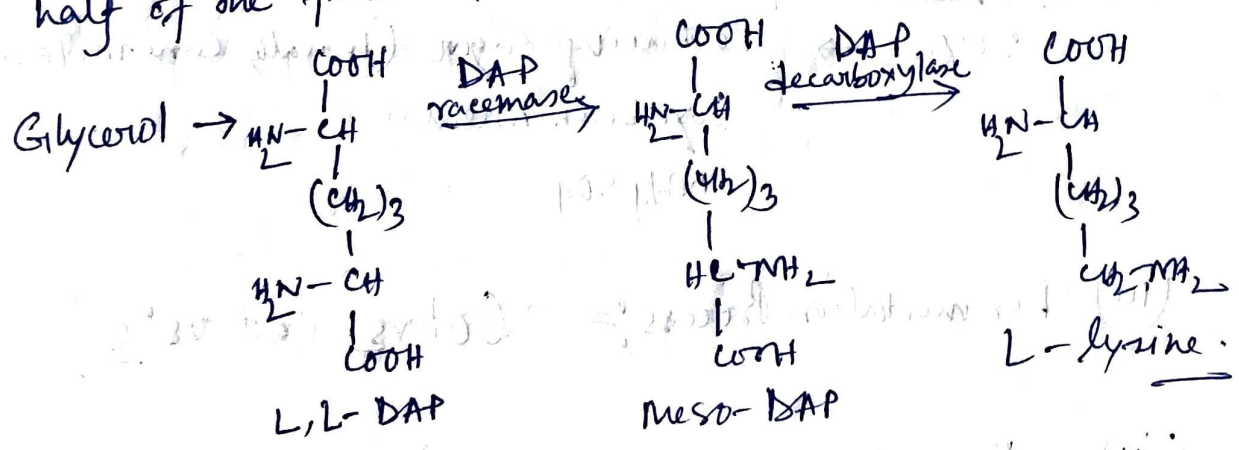 half of one
Glycerol →
COOH
H2N-CH
(CH2)3
H2N-CH
COOH
L,L- DAP
DAP
racemase
COOH
H2N-CH
(CH2)3
HC-NH2
COOH
Meso-DAP
DAP
decarboxylase
COOH
H2N-CH
(CH2)3
CH2-NH2
L-lysine.